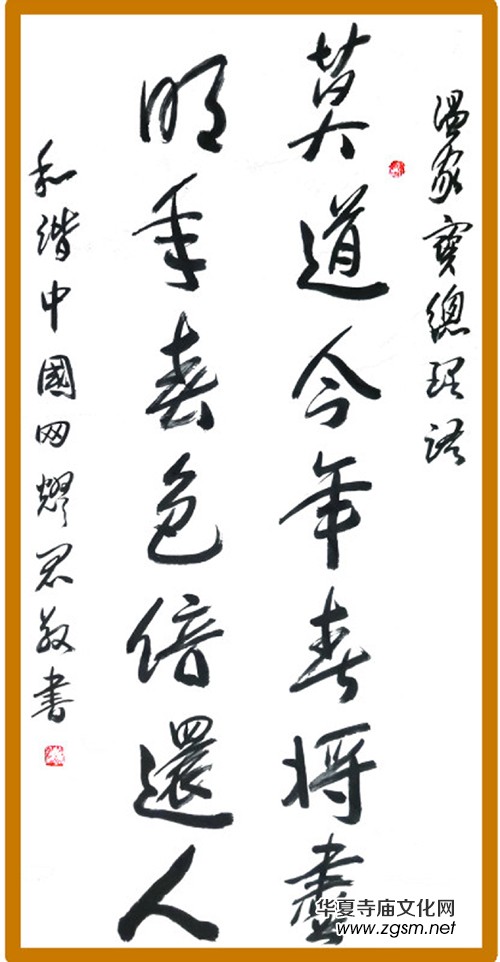 温家寶總理語
莫道今年春将盡
明年春色倍還人
和谐中國网敬書
华夏寺庙文化网
www.zgsm.net